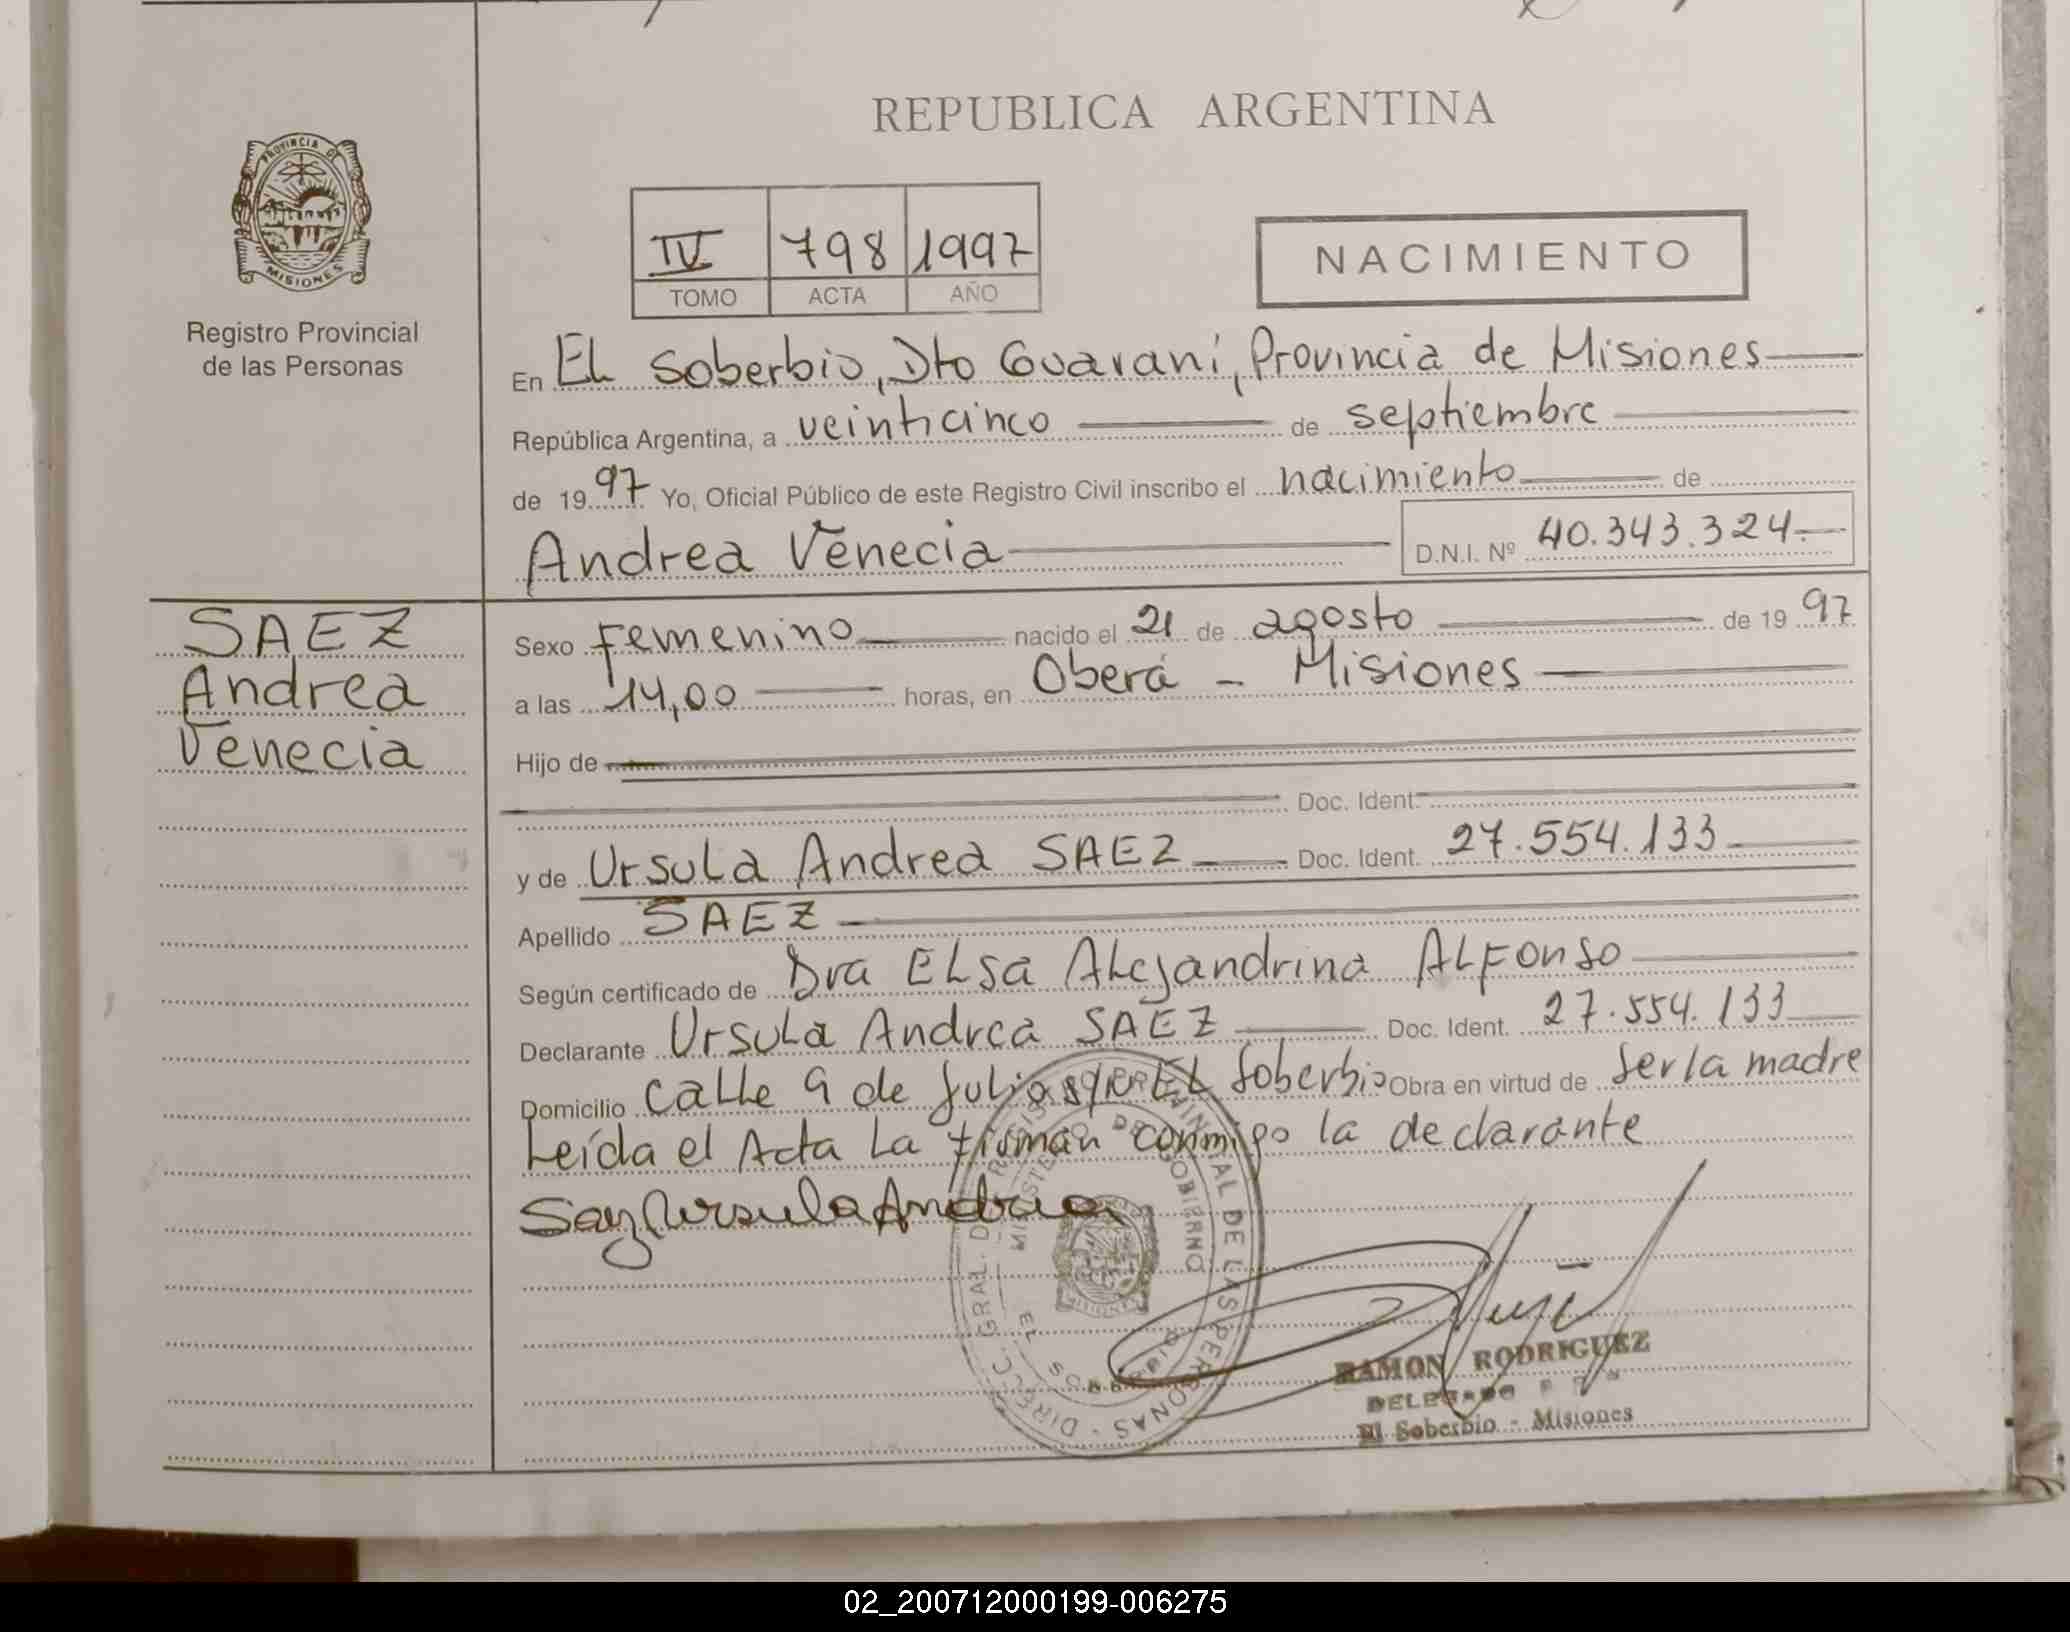 REPUBLICA ARGENTINA
PROVINCIA DE
MISIONES
Registro Provincial
de las Personas
IV 798 1997
TOMO ACTA AÑO
NACIMIENTO
En EL Soberbio, Dto Guaraní, Provincia de Misiones
República Argentina, a veinticinco de septiembre
de 1997 Yo, Oficial Público de este Registro Civil inscribo el nacimiento de
Andrea Venecia D.N.I. Nº 40.343.324.-
SAEZ
Andrea
Venecia
Sexo Femenino nacido el 21 de agosto de 1997
a las 14,00 horas, en Oberá - Misiones
Hijo de
Doc. Ident.
y de Ursula Andrea SAEZ Doc. Ident. 27.554.133
Apellido SAEZ
Según certificado de Dra ELsa ALejandrina ALFonso
Declarante Ursula Andrea SAEZ Doc. Ident. 27.554.133
Domicilio calle 9 de Julio s/n EL Soberbio Obra en virtud de Ser la madre
Leída el Acta La firman conmigo la declarante
Saez Ursula Andrea
DIRECC. GRAL. DEL REGISTRO PROVINCIAL DE LAS PERSONAS
MINISTERIO DE GOBIERNO
EL SOBERBIO
MISIONES
RAMON RODRIGUEZ
DELEGADO
El Soberbio - Misiones
02_200712000199-006275